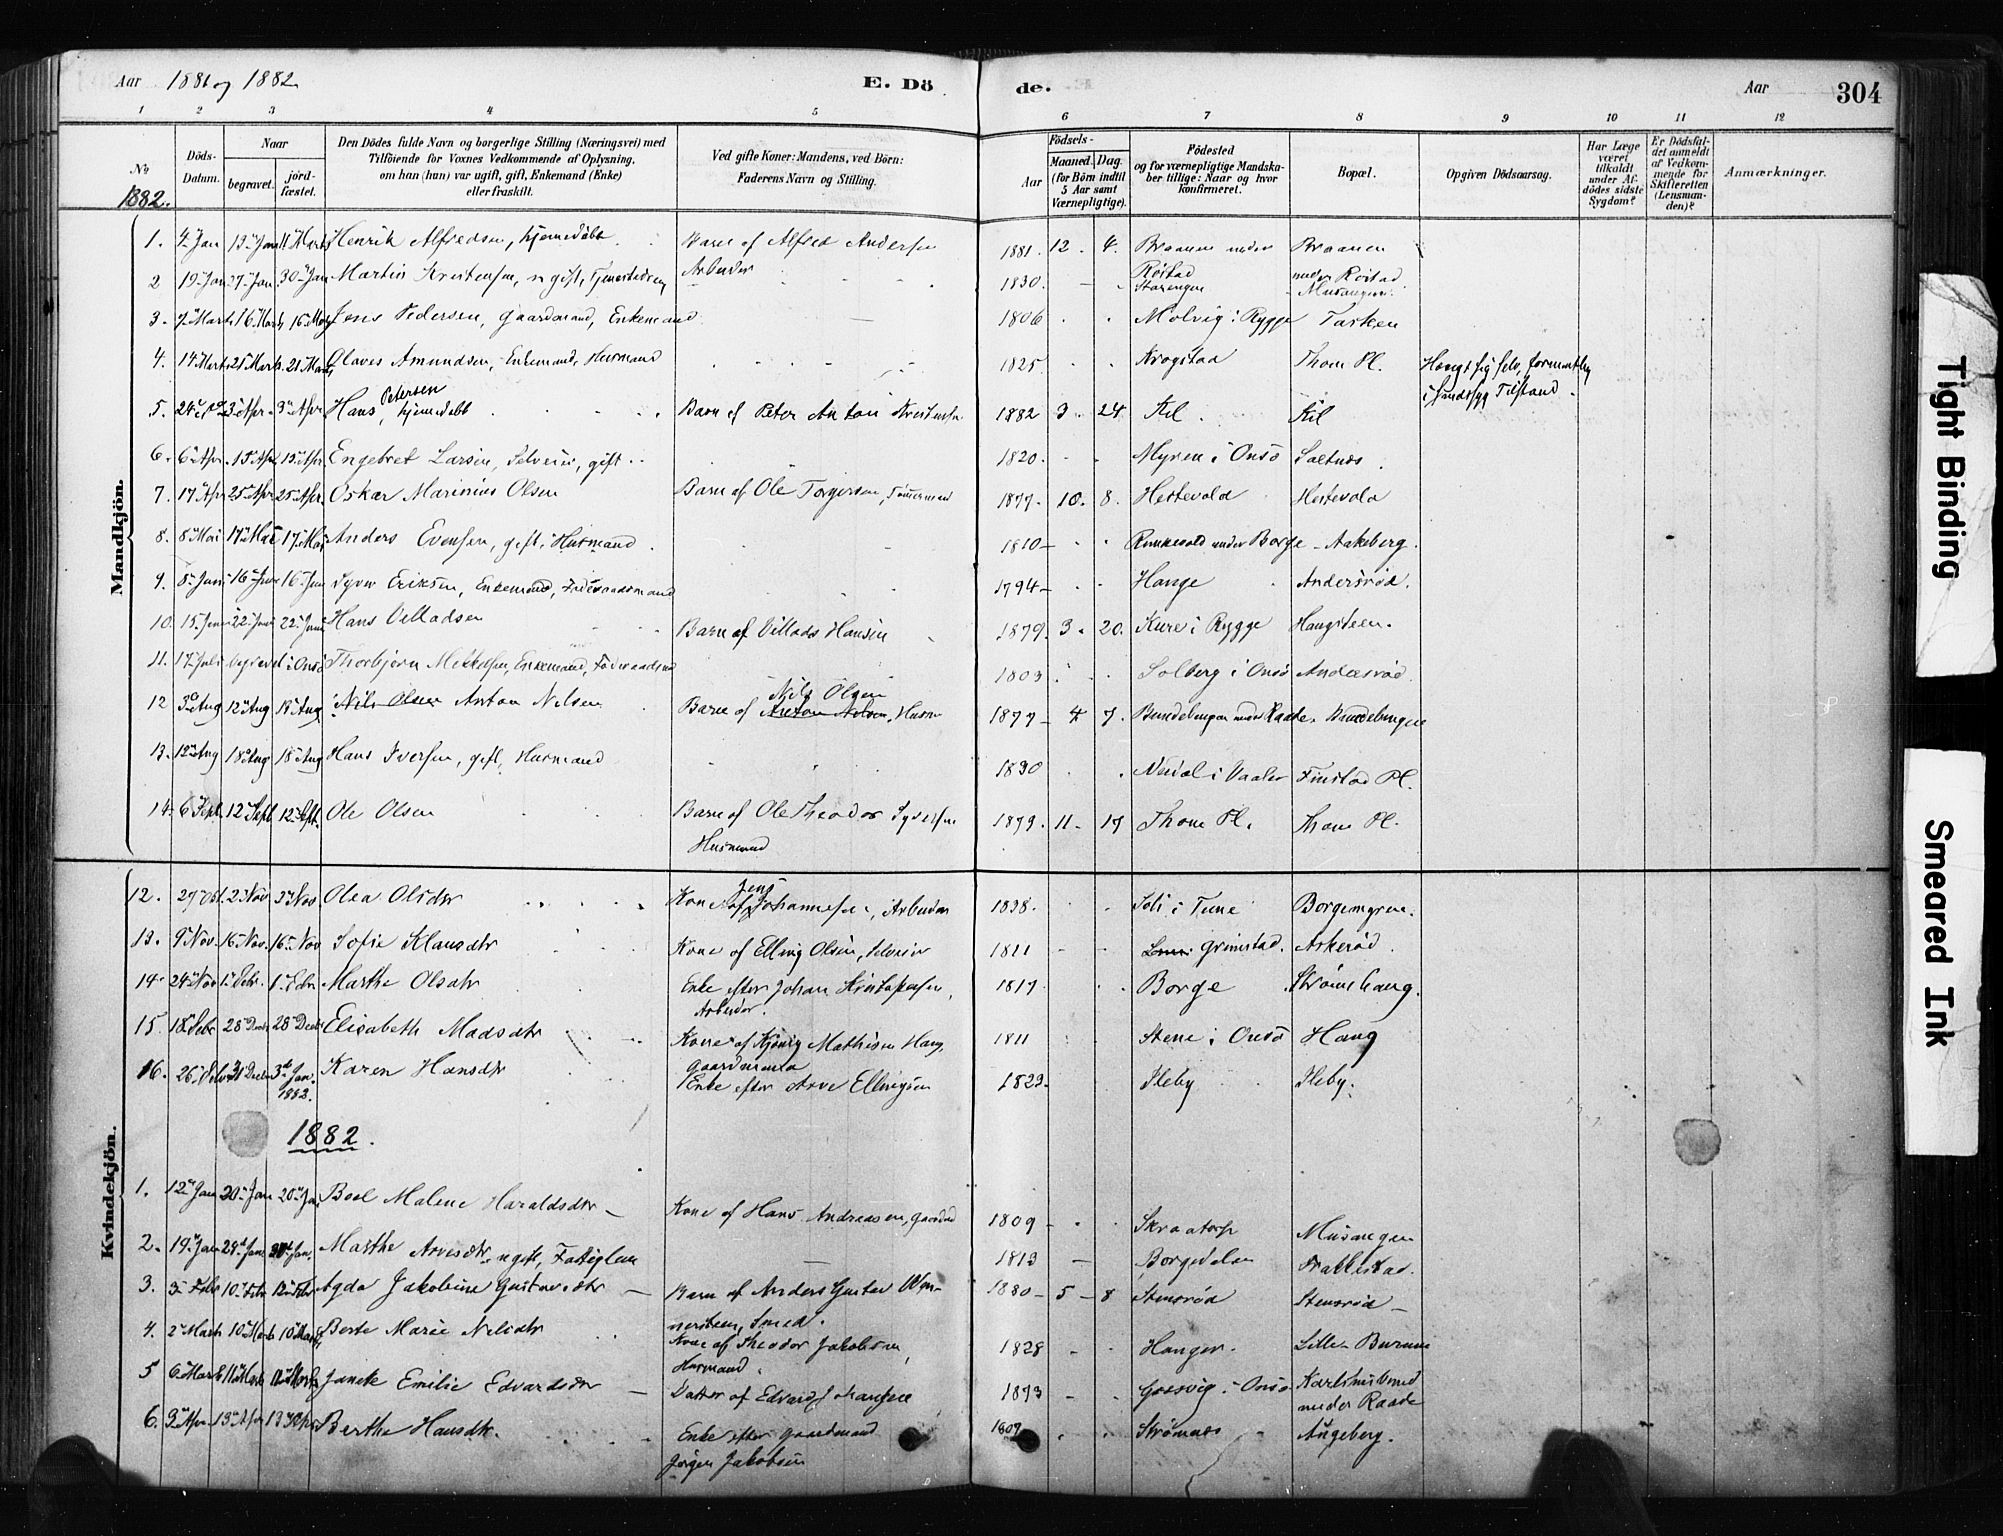 Aar 1881 og 1882 E. Döde. Aar 304
1 2 3 4 5 6 7 8 9 10 11 12
No 1882. Döds-Datum. Naar begravet. jordfæstet. Den Dödes fulde Navn og borgerlige Stilling (Næringsvei) med Tilföiende for Voxnes Vedkommende af Oplysning, om han (hun) var ugift, gift, Enkemand (Enke) eller fraskilt. Ved gifte Koner: Mandens, ved Börn: Faderens Navn og Stilling. Födsels- Aar Maaned. Dag. (for Börn indtil 5 Aar samt Værnepligtige). Födested og for værnepligtige Mandskaber tillige: Naar og hvor Konfirmeret. Bopæl. Opgiven Dödsaarsag. Har Læge været tilkaldt under Afdödes sidste Sygdom? Er Dödsfaldet anmeldt af Vedkommende for Skifteretten (Lensmanden)? Anmærkninger.
Mandkjön.
1. 4 Jan 13 Jan 11 Marts Henrik Alfredsen, hjemedöbt Barn af Alfred Andersen Arbeider 1881. 12. 4. Braanen under Röistad Braanen under Röistad
2 19 Jan 27 Jan 30 Jan Martin Kristensen, ugift, 1830. Starengen Musangen
3. 7 Marts 16 Marts 16 Marts Jens Pedersen, Gaardmand, Enkemand 1806 Molvig i Rygge Tasken
4. 14 Marts 21 Marts 21 Marts Olaves Amundsen, Enkemand, Husmand 1825. Krogstad Thom Pl. Hængt sig selv, formentlig i sindssyg Tilstand.
5. 24 3 Apr. 3 Apr Hans Petersen, hjemedöbt Barn af Peter Anton Kristensen 1882 3. 24 Kil Kil
6. 6 Apr. 15 Apr 15 Apr Engebret Larsen, Selveier, gift 1820. Myren i Onsö Saltnes
7. 17 Apr 25 Apr 25 Apr. Oskar Marinius Olsen Barn af Ole Torgersen, Tömermand 1877. 10. 8. Hestevold Hestevold
8. 8 Mai 17 Mai 17 Mai Anders Evensen, gift, Husmand 1810 Runkevold under Borge Aakeberg.
9. 8 Juni 16 Juni 16 Juni Syver Eriksen, Enkemand, Föderaadsmand 1794 Hauge Andersröd.
10. 15 Juni 22 Juni 22 Juni Hans Villadsen Barn af Villads Hansen 1879. 3. 20. Kure i Rygge Haugsteen.
11. 17 Juli begravet i Onsö Thorbjörn Mikkelsen, Enkemand, Föderaadsmand 1803 Solberg i Onsö Andersröd.
12 3 Aug 12 Aug 18 Aug Nils Olsen Anton Nilsen Barn af Anton Nilsen Nils Olsen, Husm 1877 4 7. Bundebingen under Raade. Bundebingen
13. 12 Aug 18 Aug 18 Aug Hans Iversen, gift, Husmand 1830 Neidal i Vaaler Finstad Pl.
14. 6 Sept. 12 Sept 12 Sept. Ole Olsen Barn af Ole Theodor Syversen Husmand 1879. 11. 17 Thom Pl. Thom Pl.
Kvindekjön.
12. 27 Okt. 2 Nov 3 Nov Olea Olsdtr Kone af Jens Johannesen, Arbeider 1838. Soli i Tune Borgemyren.
13. 9 Nov. 16 Nov. 16 Nov Sofie Klausdtr Kone af Elling Olsen, Selveier 1811 Grimstad. Askeröd.
14. 24 Nov 1 Debr. 1 Marthe Olsdtr Enke efter Johan Kristofersen, Arbeider. 1817 Borge Strömshaug.
15. 18 Debr 28 Decbr 28 Decbr Elisabeth Madsdtr Kone af Kjönig Mathisen Haug, Gaardmand 1811 Stene i Onsö Haug
16. 26 Debr 31 Decbr 3die Jan. 1882. Karen Hansdtr Enke efter Arve Ellingsen 1823. Ileby Ileby.
1882.
1. 12 Jan 20 Jan 20 Jan Boel Malene Haraldsdtr Kone af Hans Andreasen, Gaardmd 1809 Skraatorp Musangen
2. 19 Jan 29 Jan Marthe Arvesdtr ugift, Fattiglem 1813 Borgedalen Frakkestad.
3. 3 Febr 10 Febr Agda Jakobine Gustavsdtr Barn af Anders Gustav Wennersteen, Smed. 1880 5 8 Stensröd Stensröd
4. 2 Marts 10 Marts 10 Marts Berte Marie Nilsdtr Kone af Theodor Jakobsen, Husmand. 1828 Hanger. Lille Burum
5 6 Marts 11 Marts Janette Emilie Edvardsdtr Datter af Edvard Johansen 1873 Gaasvig i Onsö Karlshusbund under Raade
6. 3 Apr 13 Apr 13 Apr Berthe Hansdtr. Enke efter Gaardmand Jörgen Jakobsen 1807 Strömnes Augeberg.
Tight Binding
Smeared Ink